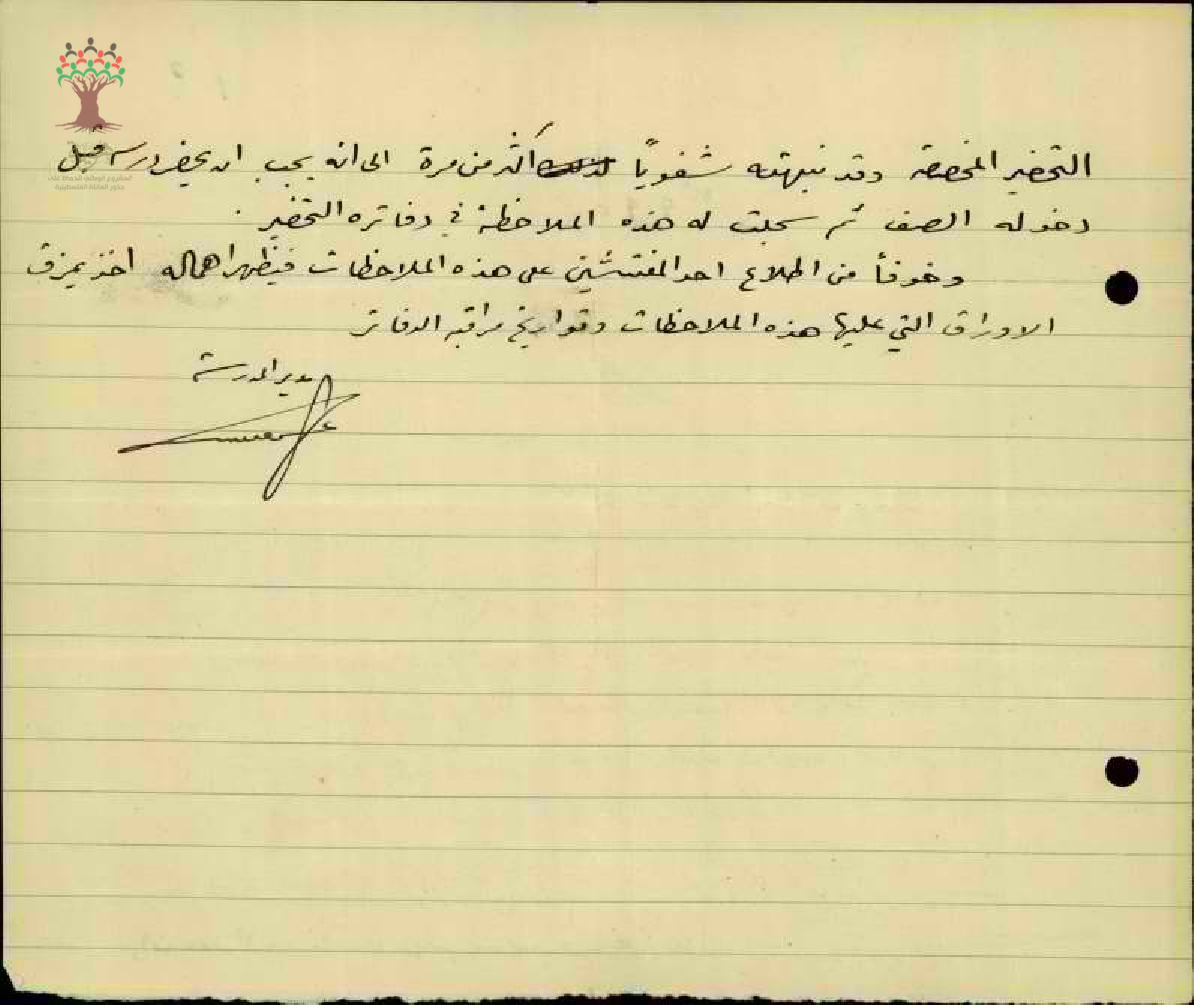 التحضير المخصصة وقد نبهته شفوياً اكثر من مرة الى انه يجب ان يحضر درسه قبل
دخوله الصف ثم سجلت له هذه الملاحظة في دفاتره التحضير .
وخوفاً من اطلاع احد المفتشين على هذه الملاحظات فيظهر اهماله اخذ يمزق
الاوراق التي عليها هذه الملاحظات وتواريخ مراقبة الدفاتر
مدير المدرسة